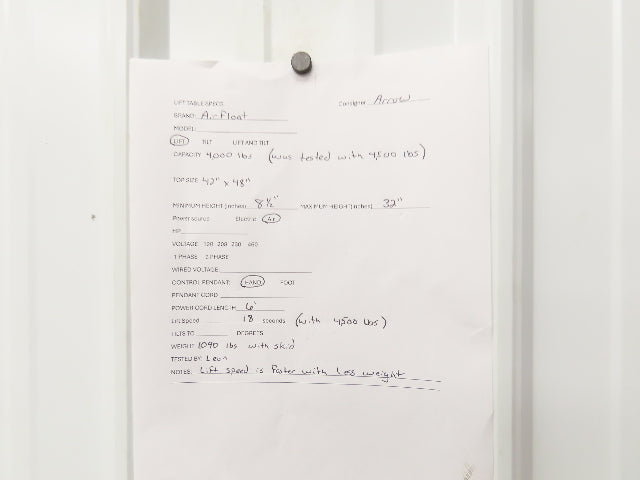 LIFT TABLE SPECS Consigner Arrow
BRAND: Air Float
MODEL:
LIFT TILT LIFT AND TILT
CAPACITY 4,000 lbs (was tested with 4,500 lbs)
TOP SIZE 42" x 48"
MINIMUM HEIGHT (inches) 8 1/2" MAXIMUM HEIGHT (inches) 32"
Power source Electric Air
HP
VOLTAGE 110 208 230 460
1 PHASE 3 PHASE
WIRED VOLTAGE
CONTROL PENDANT: HAND FOOT
PENDANT CORD
POWER CORD LENGTH 6'
Lift Speed 18 seconds (with 4500 lbs)
TILTS TO DEGREES
WEIGHT 1090 lbs with skid
TESTED BY: Leon
NOTES: Lift speed is Faster with Less weight